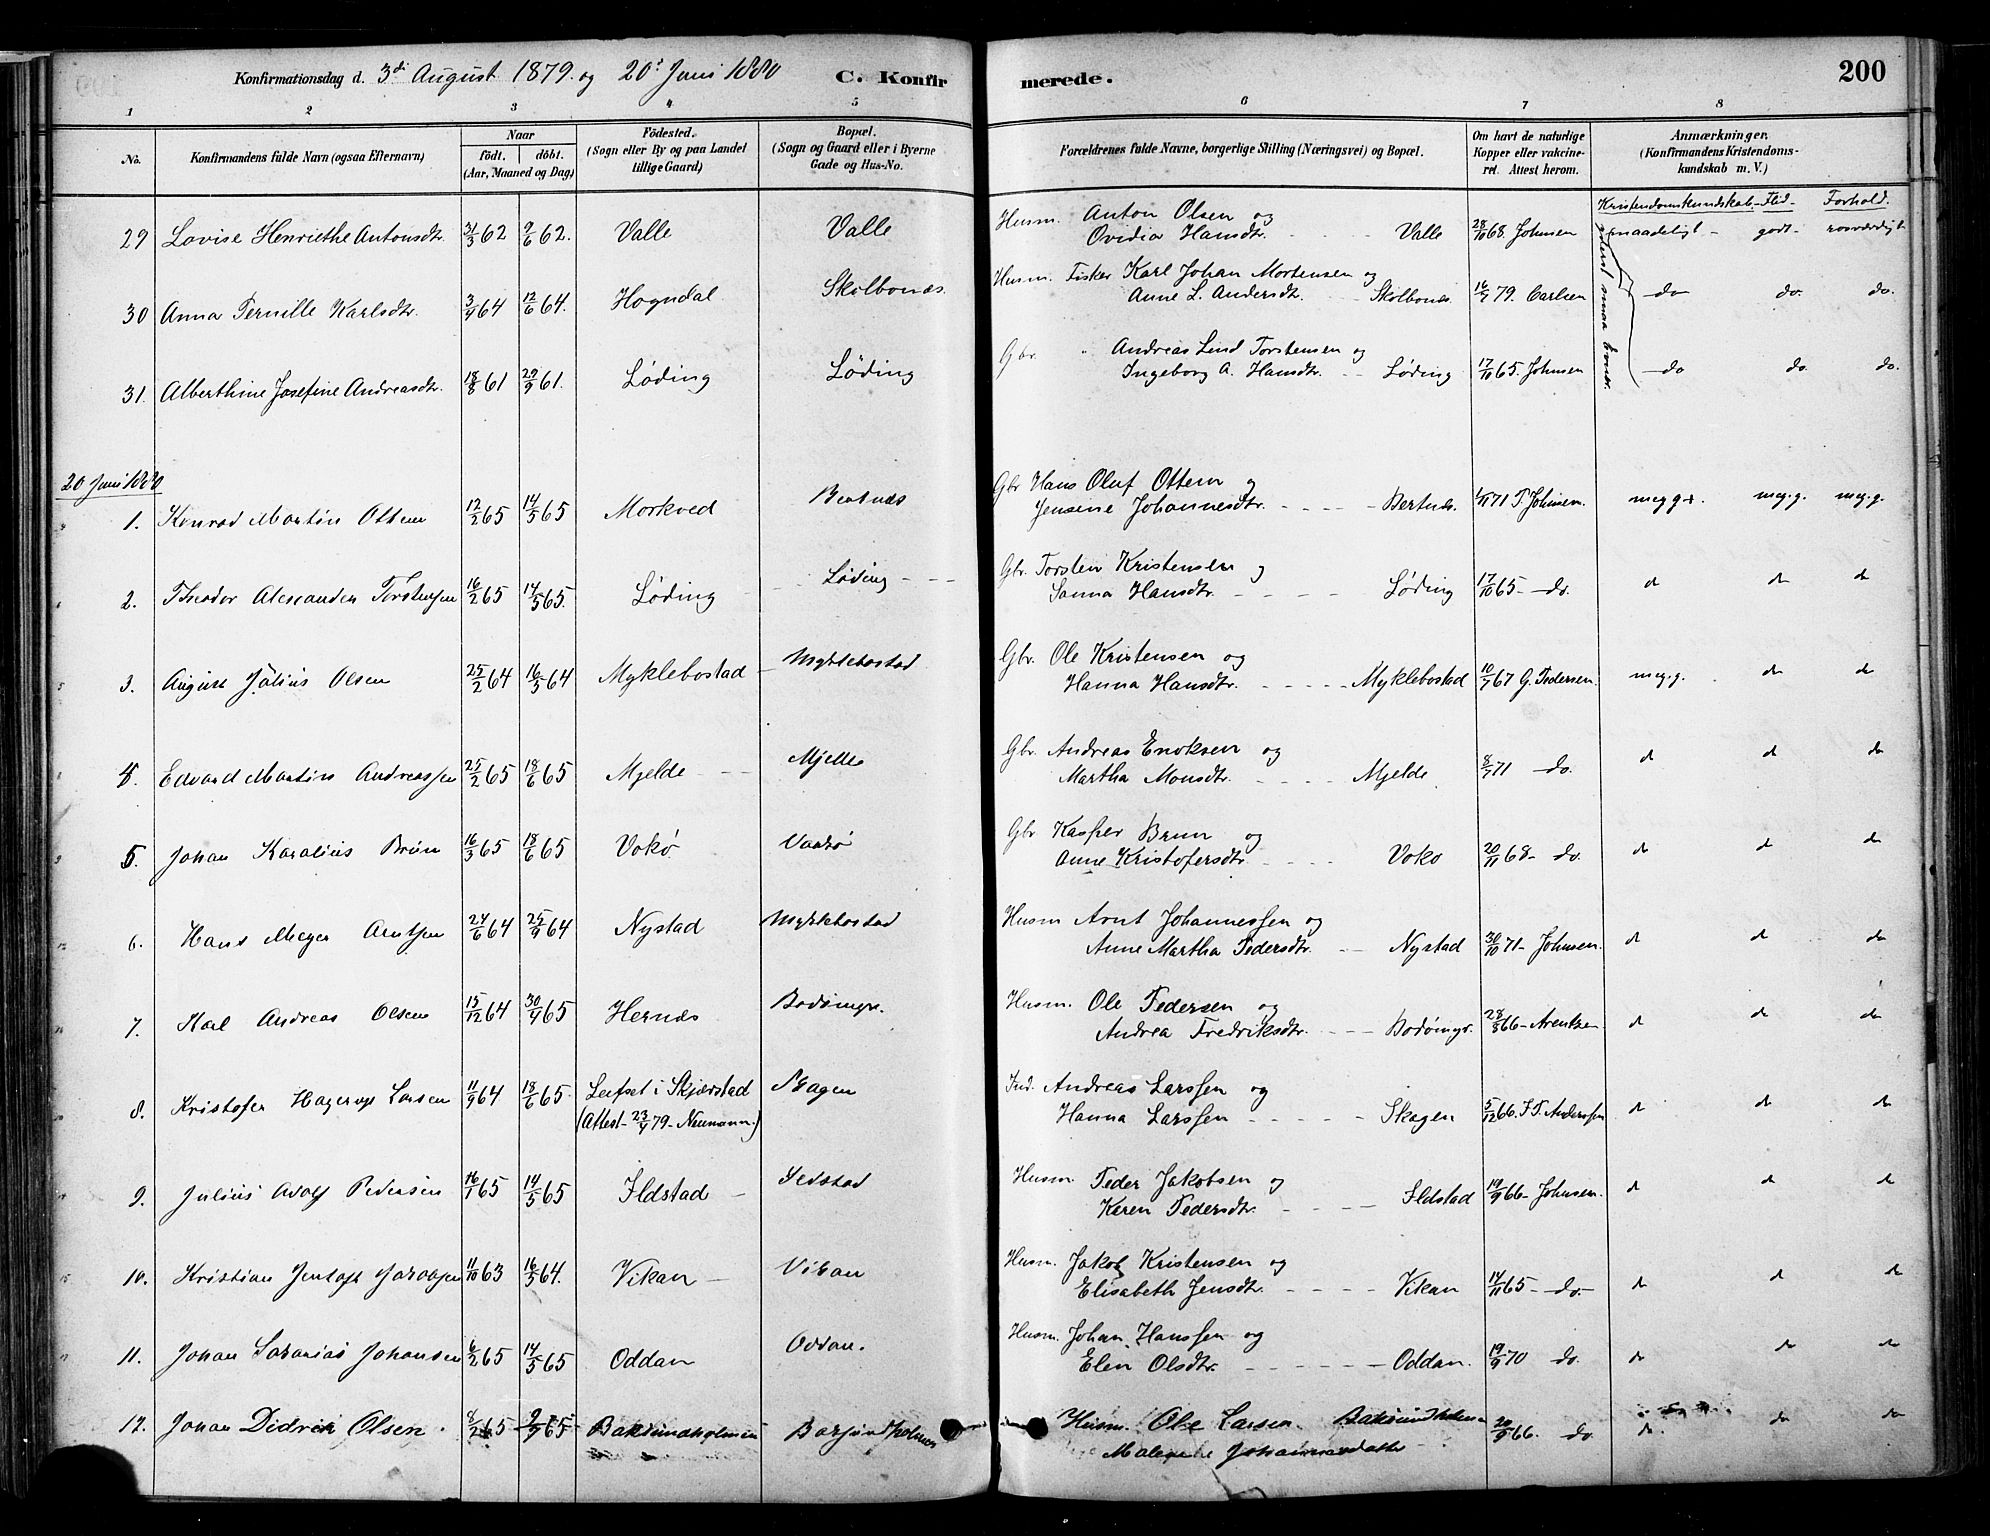 Konfirmationsdag d. 3di August 1879. og 20d Juni 1880 C. Konfirmerede. 200
1 2 3 4 5 6 7 8
No. Konfirmandens fulde Navn (ogsaa Efternavn) Naar födt. döbt. (Aar, Maaned og Dag) Födested. (Sogn eller By og paa Landet tillige Gaard) Bopæl. (Sogn og Gaard eller i Byerne Gade og Hus-No. Forældrenes fulde Navne, borgerlige Stilling (Næringsvei) og Bopæl. Om havt de naturlige Kopper eller vakcineret. Attest herom. Anmærkninger. (Konfirmandens Kristendomskundskab m. V.)
Kristendomskundskab - Flid - Forhold.
29 Lovise Henriethe Antonsdtr. 31/3 62 9/6 62. Valle Valle Husm. Anton Olsen og Valle 28/10 68. Johnsen maadeligt - godt - rosværdigt
Ovidia Hansdtr.
30 Anna Pernille Karlsdtr. 3/4 64 12/6 64. Hogndal Skolbones. Husm. Fisker Karl Johan Mortensen og Skolbones. 16/7 79. Carlsen do do. do.
Anne L. Andersdtr.
31. Alberthine Josefine Andreasdtr. 18/8 61 29/9 61. Løding Løding Gbr. " Andreas Lind Torstensen og Løding 17/10 65. Johnsen do do. do.
Ingeborg A. Hansdtr.
20 Juni 1880
1. Konrad Martin Ottem 12/2 65 14/5 65 Morkved Bertnes Gbr Hans Oluf Ottem og Bertnes. 71 P. Johnsen. meg.g. meg.g.
Jensine Johannesdtr.
2. Theodor Alexander Torstensen 16/2 65 14/5 65. Løding Løding Gbr. Torsten Kristensen og Løding 17/10 65 - do. d d d
Sanna Hansdtr.
3. August Julius Olsen 25/2 64 16/5 64 Myklebostad Myklebostad Gbr. Ole Kristensen og Myklebostad 10/7 67 G. Pedersen. meg.g. do d
Hanna Hansdtr.
4. Edvard Martin Andreassen 25/2 65 18/6 65 Mjelde Mjelle Gbr. Andreas Enoksen og Mjelde 8/7 71 do. d d do
Martha Monsdtr.
5. Johan Karolius Brun 16/3 65 18/6 65 Vokø Gbr Kasper Brun og Voko 20/11 68 - do. d do do
Anne Kristofersdtr.
6. Hans Meyer Arntsen 24/6 64 25/9 64 Nystad Myklebostad Husm Arnt Johannessen og Nystad 30/10 71 - Johnsen. d d do
Anne Martha Pedersdtr.
7. Karl Andreas Olsen 15/12 64 30/4 65 Hernes Bodømyr. Husm. Ole Pedersen og Bodømyr. 28/8 66 - Arentzen d do d
Andrea Fredriksdtr.
8. Kristofer Hagerup Larsen 11/9 64 18/6 65. Leifset i Skjerstad Skagen Ind. Andreas Larssen og Skagen 5/12 66. P. Anderssen d do do
(Attest - 23/4 79 - Neumann.) Hanna Larssen
9. Julius Adolf Pedersen 16/1 65 14/5 65 Ildstad Ildstad Husm Peder Jakobsen og Ildstad 19/9 66 - Johnsen. d do do
Karen Pedersdtr.
10. Kristian Jentoft Jakobsen 11/10 63 16/5 64. Vikan Vikan Husm. Jakob Kristensen og Vikan 14/11 65 - do. d do do
Elisabeth Jensdtr.
11. Johan Zakarias Johansen 6/2 65 14/5 65 Oddan Oddan. Husm. Johan Hanssen og Oddan. 19/9 70 do. do do do
Elen Olsdtr.
12. Johan Didrik Olsen. 8/2 65 65 Baksundholmen Husm. Ole Larsen Baksundholmen 20/9 66. do. do. do do
Johannesdatter